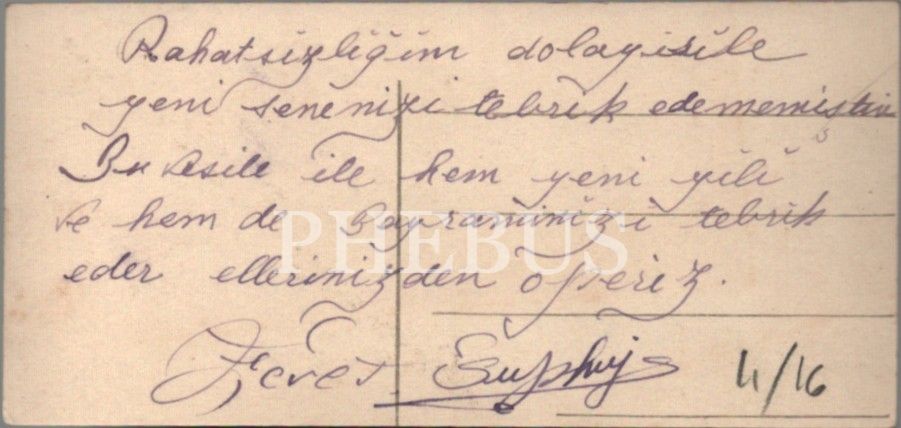 Rahatsizliğim dolayisile
yeni senenizi tebrik edememiştim
Bu vesile ile hem yeni yili
ve hem de Bayraminizi tebrik
eder ellerinizden öperiz.
Suphiye
4/16
PHEBUS